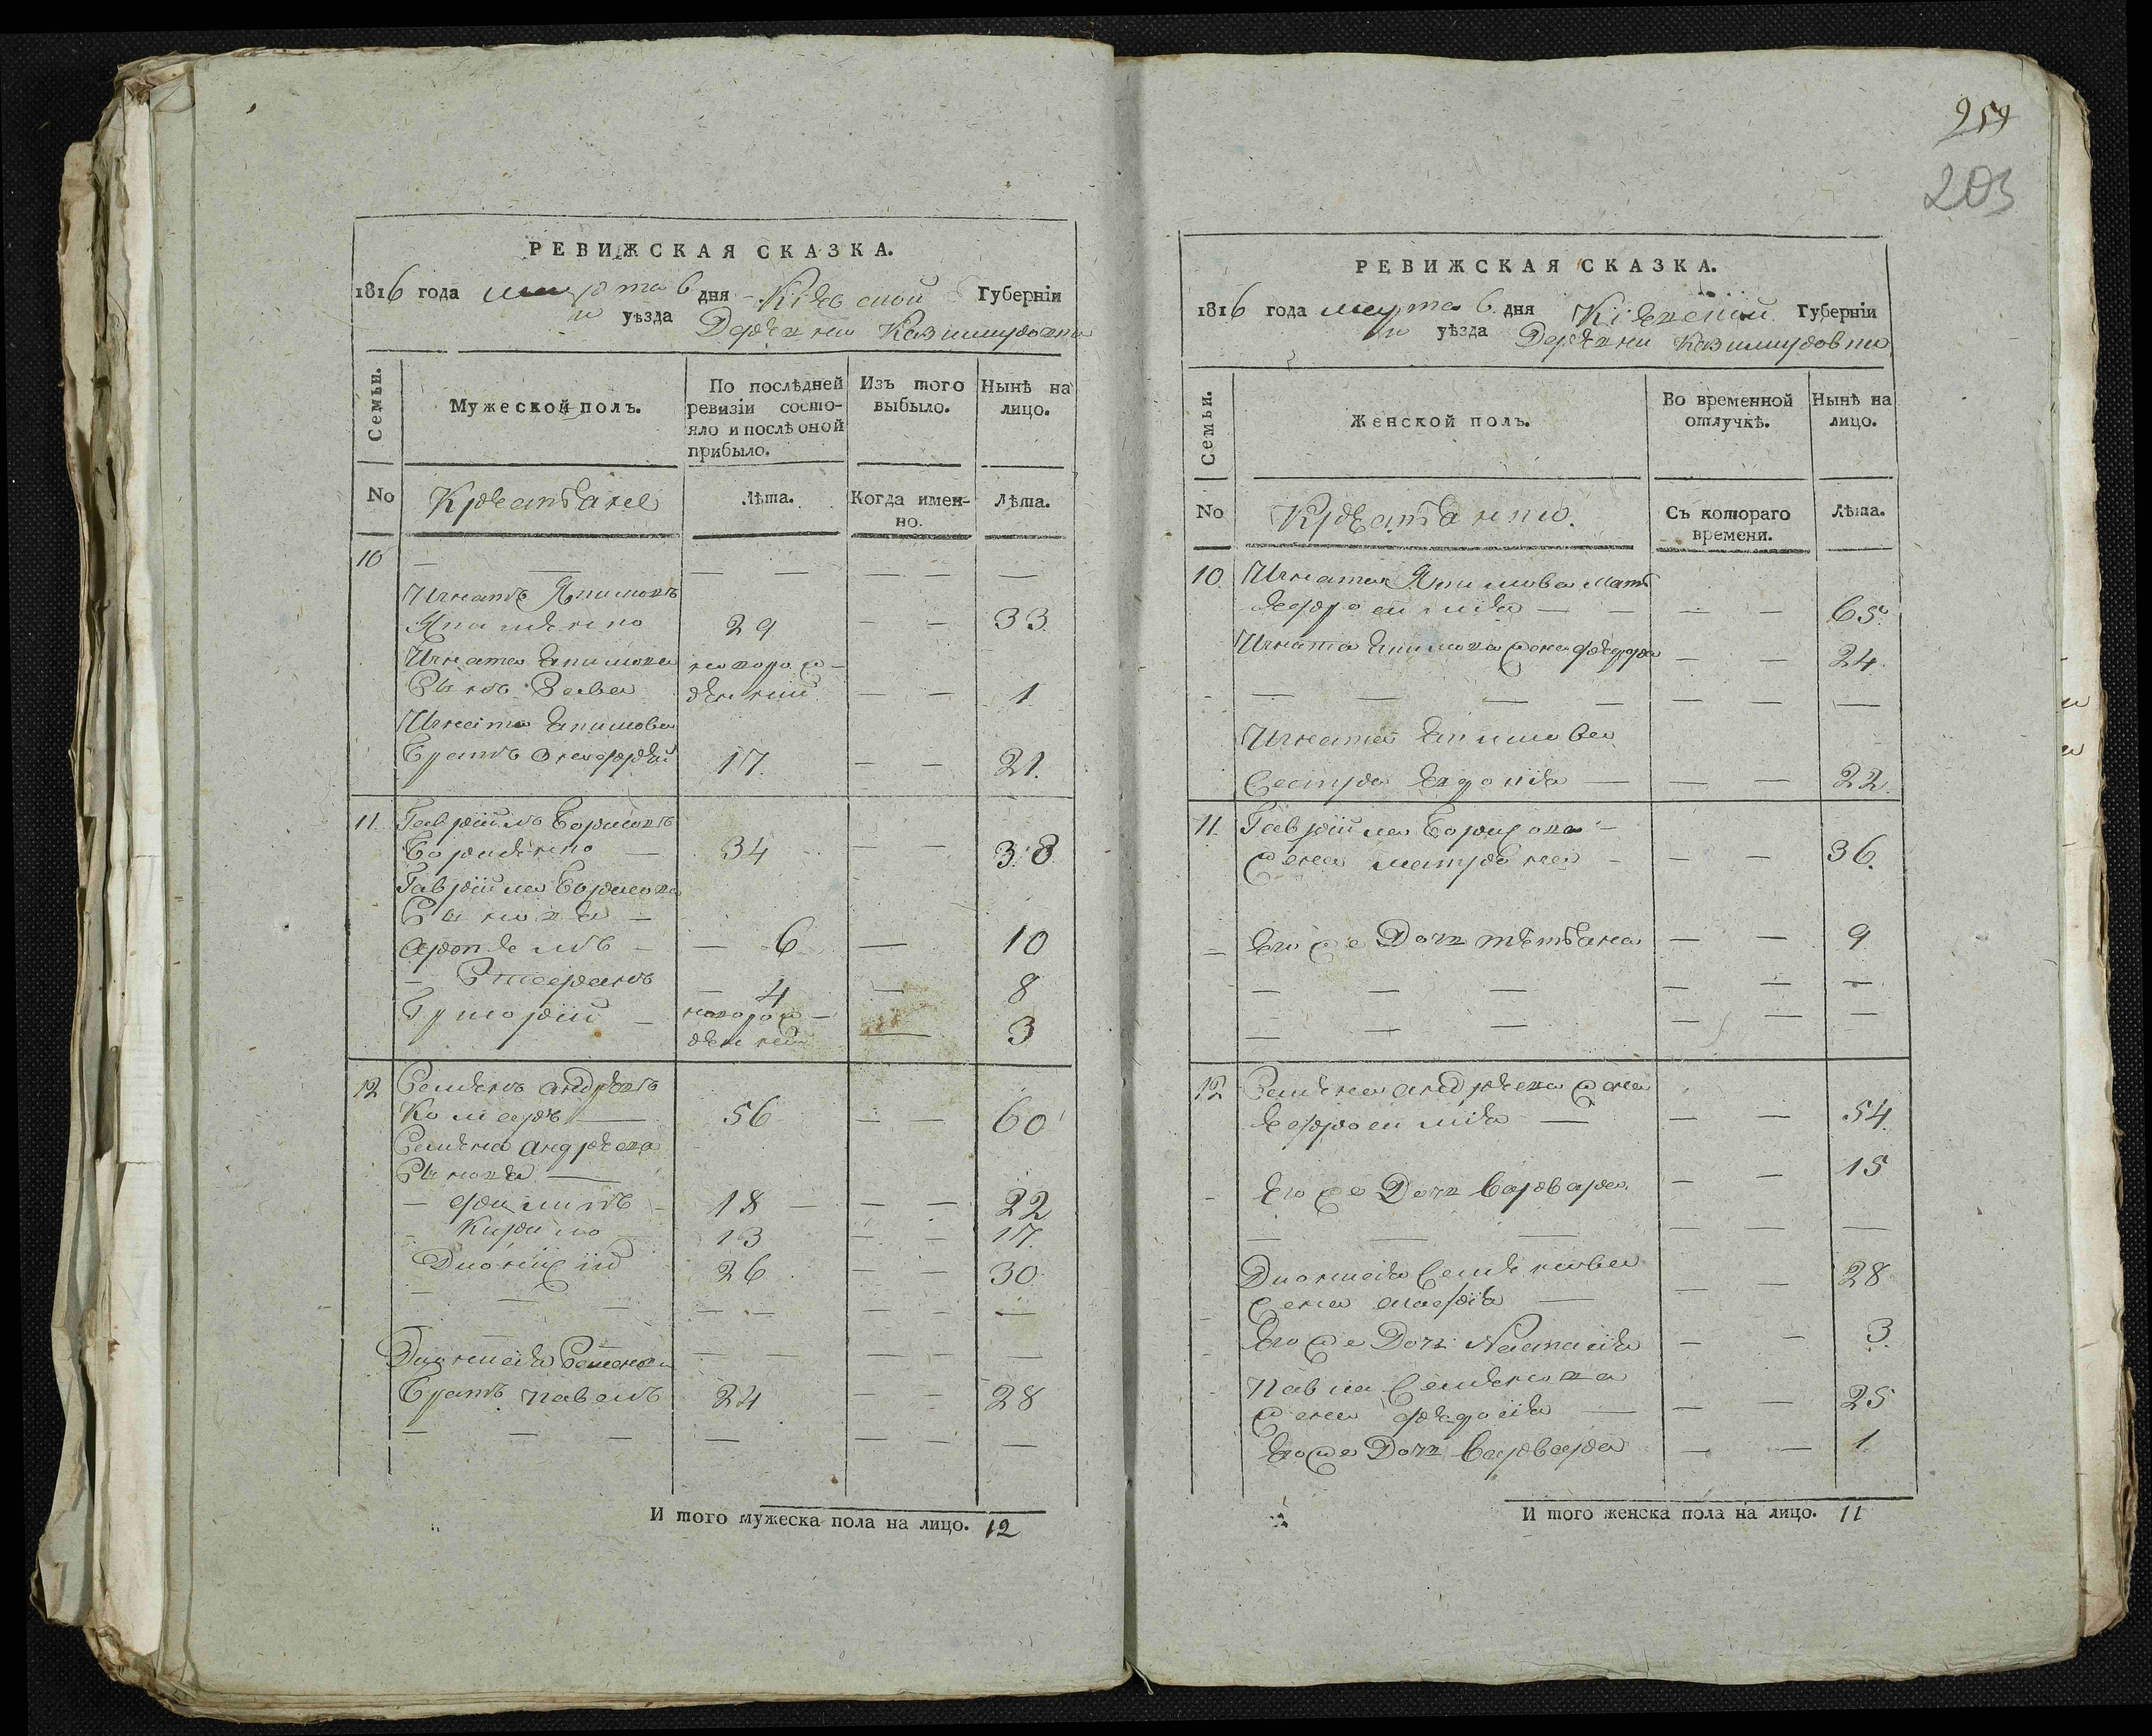 РЕВИЖСКАЯ СКАЗКА.
1816 года марта 6 дня Кіевской Губерніи
уѣзда Деревни Казимировки
Семьи.
Мужеской полъ.
По послѣдней ревизіи состо-
яло и послѣ оной
прибыло.
Изъ того выбыло.
Нынѣ на лицо.
No
Крестьяне
Лѣта.
Когда имен-
но.
Лѣта.
10
Игнатъ Якимовъ
29 — — 33
Игната Екимова новорож-
Сынъ Савва денный — — 1
Игната Екимова
Братъ Онофрей 17. — — 21.
11. Гавріилъ Борисовъ
Борисенко — 34 — — 38
Гавріила Борисова
Сыновья —
Артемъ — — 6 — 10
— Стефанъ — 4 — 8
Григорій — новорож-
денный — 3
12 Семенъ Андреевъ
Комаръ — 56 — — 60
Семена Андреева
Сыновья —
— Филипъ — 18 — — — 22
- Кирило 13 — — 17.
Дионисій 26 — — 30
Дионисія Семенова
Братъ Павелъ 24 — — 28
И того мужеска пола на лицо. 12
254
203
РЕВИЖСКАЯ СКАЗКА.
1816 года марта 6. дня Кіевской Губерніи
уѣзда Деревни Казимировки
Семьи.
Женской полъ.
Во временной отлучкѣ.
Нынѣ на лицо.
No
Крестьянки.
Съ котораго времени.
Лѣта.
10. Игната Якимова мать
Евфросинія — — — — 65.
Игната Екимова жена Федора — — 24.
Игната Екимова
Сестра Евдокія — — — 22.
11. Гавріила Борисова —
жена Матрона — — — 36.
— Его же дочь Татьяна — — 9
12 Семена Андреева жена
Евфросинія — — — 54.
- Его же Дочь Варвара. — — 15
Дионисія Семенова
жена Марія — — — 28
Его же Дочь Наталія — — 3.
Павла Семенова
жена Федосія — — — 25
Его же Дочь Варвара — — 1.
И того женска пола на лицо. 11